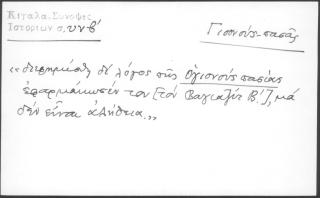 Κιγάλα. Σύνοψις
Ἱστοριῶν σ. υνβ'
Γιονούς-πασᾶς
«διεφημίσθη δὲ λόγος πῶς Ὁγιονούς πασίας
ἐφαρμάκωσέν τον [τὸν Βαγιαζὶτ Β.'], μὰ
δὲν εἶναι ἀλήθεια.»